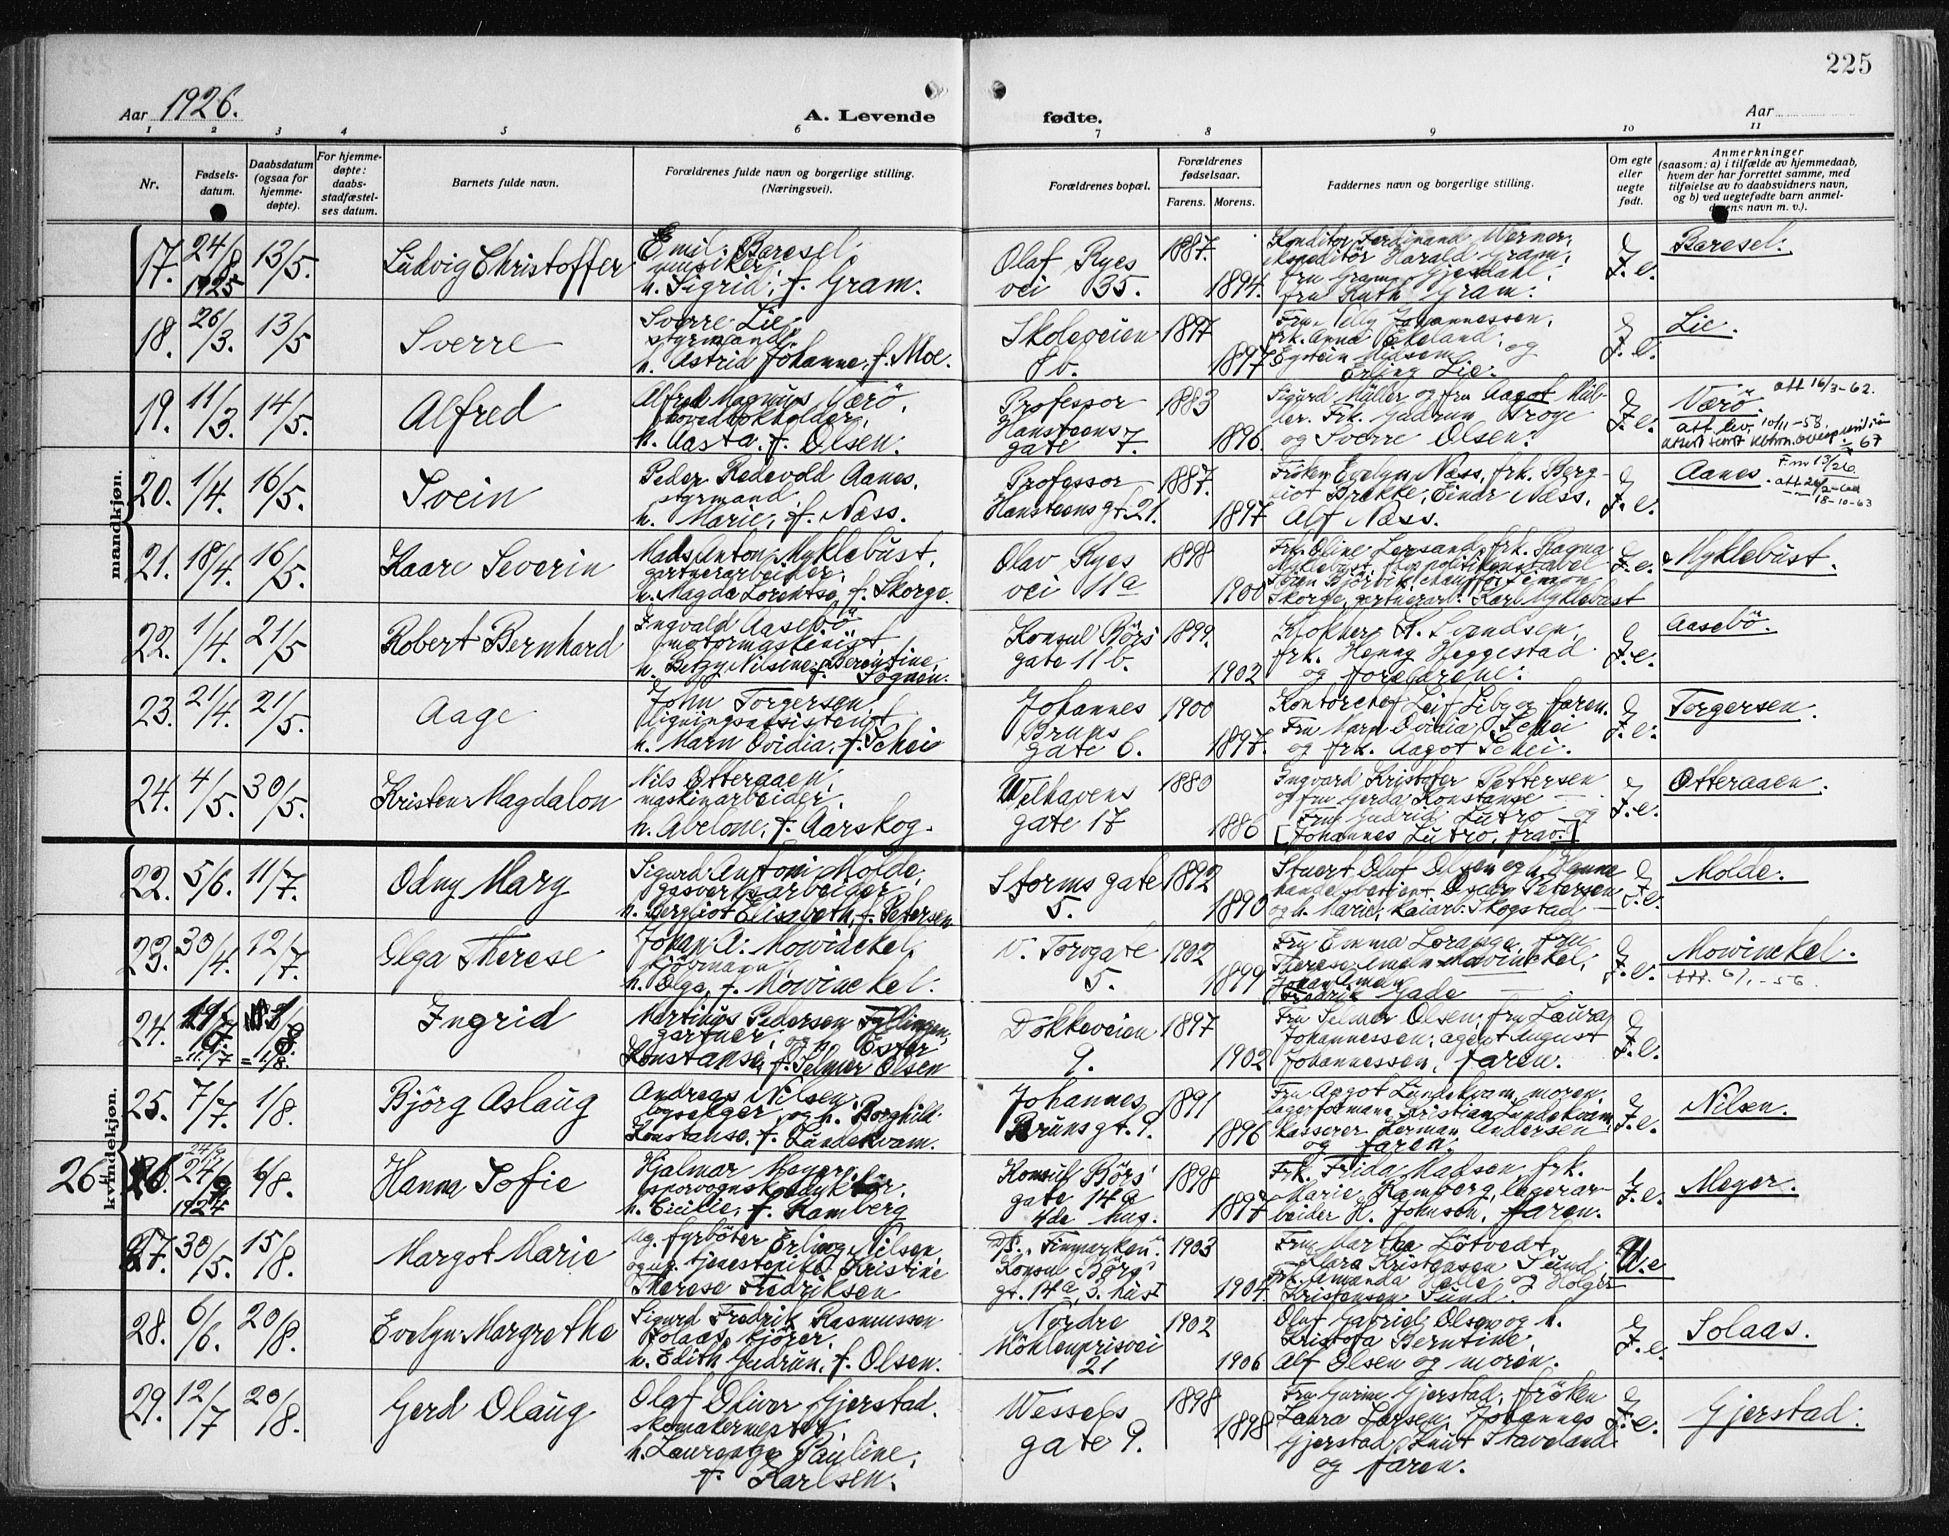 225
Aar 1926.
A. Levende fødte.
Aar
1 2 3 4 5 6 7 8 9 10 11
Nr.
Fødsels-
datum.
Daabsdatum
(ogsaa for
hjemme-
døpte).
For hjemme-
døpte:
daabs-
stadfæstel-
ses datum.
Barnets fulde navn.
Forældrenes fulde navn og borgerlige stilling.
(Næringsvei).
Forældrenes bopæl.
Forældrenes
fødselsaar.
Farens. Morens.
Faddernes navn og borgerlige stilling.
Om egte
eller
uegte
født.
Anmerkninger
(saasom: a) i tilfælde av hjemmedaab,
hvem der har forrettet samme, med
tilføielse av to daabsvidners navn,
og b) ved uegtefødte barn anmel-
derens navn m. v.).
mandkjøn.
17. 24/8 1925 13/5. Ludvig Christoffer
Emil Baresel
musiker,
h. Sigrid, f. Gram.
Olaf Ryes
vei 35.
1887. 1894.
Konditor Ferdinand Werner,
ekspeditör Harald Gram,
fru Gram Gjesdahl,
fru Ruth Gram.
E
F.e.
Baresel.
18. 26/3. 13/5 Sverre
Sverre Lie,
styrmand,
h. Astrid Johanne, f. Moe.
Skoleveien
8 b.
1897 1897
Fru Elly Johannessen,
frk. Anna Eikeland,
og
Erling Lie.
E
F.e.
Lie.
19. 11/3. 14/5. Alfred
Alfred Magnus Værö,
hovedbokholder,
h. Aasta, f. Olsen.
Professor
Hansteens
gate 7.
1883 1896.
Sigurd Müller og fru Aagot Mül-
ler. Frk. Gudrun Troye
og Sverre Olsen.
E
F.e.
Værö att 16/3-62.
att. lev. 10/11-58.
67
20. 1/4. 16/5. Svein
Peder Redevold Aanes,
styrmand,
h. Marie, f. Næss.
Professor
Hansteens gt 21.
1887. 1897
Fröken Evelyn Næss, frk. Berg-
liot Brekke, Einar Næss,
Alf Næss.
E
F.e.
Aanes. F.m 13/26.
18-10-63
21. 18/4. 16/5. Kaare Severin
Mads Anton Myklebust,
gartnerarbeider,
h. Magda Lorentse, f. Skorge.
Olav Ryes
vei 11a
1898 1900
Frk. Oline Lepsand, frk. Ragna
Myklebust,
Skorge, gartnerarb. Karl Myklebust
E
F.e.
Myklebust.
22. 1/4. 21/5 Robert Bernhard
Ingvald Aasebö
motormaskinist,
h. Betzy Nilsine Berentine,
f. Sognen.
Konsul Börs
gate 11 b.
1899. 1902
frk. Henny Heggestad
og forældrene.
E
F.e.
Aasebö.
23. 21/4. 21/5 Aage
John Torgersen,
ligningsassistent,
h. Marn Ovidia, f. Schei
Johannes
Bruns
gate 6.
1900 1897.
Kontorchef Leif Liby og faren.
Fru Marn Ovidia Schei
og frk. Aagot Schei.
E
F.e.
Torgersen.
24. 4/5. 30/5. Kristen Magdalon
Nils Otteraaen,
maskinarbeider.
h. Abelone, f. Aarskog.
Welhavens
gate 17
1880 1886
Ingvard Kristofer Pettersen
og fru Gerda Konstanse
Fru Gudrid Lutro og
[Johannes Lutro, frav.]
E
F.e.
Otteraaen.
kvindekjøn.
22. 5/6. 11/7. Odny Mary
Sigurd Antoni Molde,
gasverksarbeider,
h. Bergliot Elisabeth, f. Petersen
Storms gate
5.
1892 1890
Stuert Oluf Olsen og h. Hanna
handelsbetjent Oscar Petersen
og h. Marie, kaiarb. Skogstad
E
F.e.
Molde.
23. 30/4. 12/7. Olga Therese
Johan A. Mowinckel,
kjöpmann,
h. Olga, f. Mowinckel.
N. Torvgate
5.
1902 1899
Fru Emma Loranga, fru
Therese Mowinckel,
Fredrik Gade
E
F.e.
Mowinckel.
Att. 6/1-56.
24. =11./7 =1./8. Ingrid
Martinus Pedersen Fyllingen,
gartner, og h. Ester
Konstanse, f. Selmer Olsen
Dokkeveien
9.
1897 1902
Fru Selmer Olsen, fru Laura
Johannessen, agent August
Johannessen, faren.
E
F.e.
25. 7/7. 1/8. Björg Aslaug
Andreas Nilsen,
byselger, og h. Borghild
Konstanse, f. Lundekvam.
Johannes
Bruns gt. 9.
1891 1896
Fru Aagot Lundekvam, moren,
lagerformann Kristian Lundekvam
kasserer Herman Andersen
og faren.
E
F.e.
Nilsen.
26 26. 24/9 1924 6/8. Hanna Sofie
Hjalmar Meyer,
sporvognskonduktör,
h. Cicilie, f. Hamberg
Konsul Börs
gate 14a
4de hus.
1898 1897
Frk. Frida Madsen, frk.
Marie Hamberg, lagerar-
beider H. Johnson, faren.
E
F.e.
Meyer.
27. 30/5. 15/8. Margot Marie
Ug. fyrböter Erling Nilsen,
og ug. tjenestepike Kristine
Therese Fredriksen
D/S. „Finmarken".
Konsul Börs
gt. 14a, 3. hus
1903 1904.
Fru Martha Lötvedt,
Klara Kristensen Sund,
frk. Amanda Helle og Holger
Kristensen Sund.
U.e
28. 6/6. 20/8. Evelyn Margrethe
Sigurd Fredrik Rasmussen
Solaas, kjörer,
h. Edith Gudrun, f. Olsen.
Nordre
Möhlenprisvei
21
1902 1906
Oluf Gabriel Olsen og h.
Kristofa Berntine,
Alf Olsen og moren.
E
F.e.
Solaas.
29. 12/7 20/8. Gerd Olaug
Olaf Oliver Gjerstad.
skomakermester,
h. Laurentze Pauline,
f. Karlsen.
Wessels
gate 9.
1898 1898
Fru Gurine Gjerstad, fröken
Laura Larsen, Johannes
Gjerstad, Knut Staveland
og faren.
E
F.e.
Gjerstad.